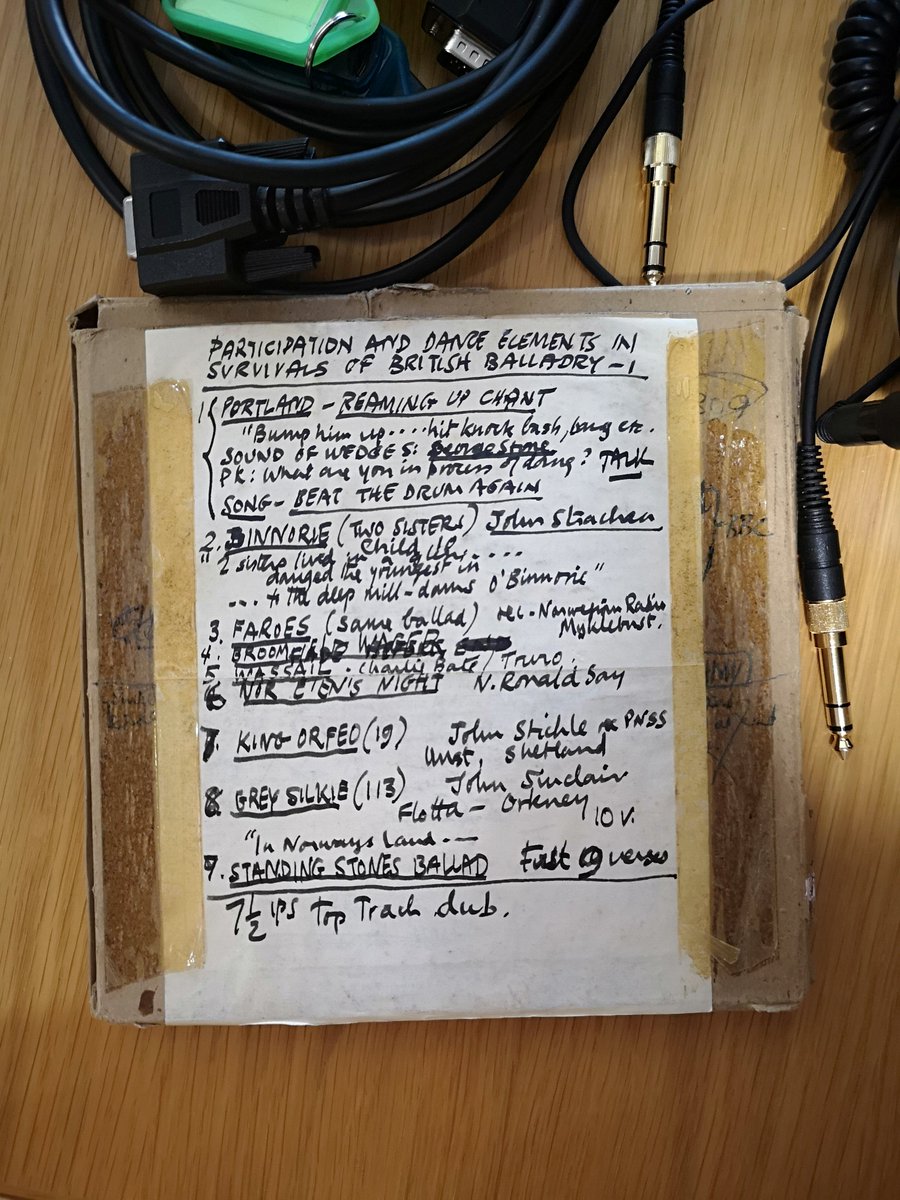 PARTICIPATION AND DANCE ELEMENTS IN
SURVIVALS OF BRITISH BALLADRY - 1
1 PORTLAND - REAMING UP CHANT
"Bump him up.... hit knock bash, bang etc.
SOUND OF WEDGES:
PK: What are you in process of doing? TALK
SONG - BEAT THE DRUM AGAIN
2. BINNORIE (TWO SISTERS) John Strachan
"2 sisters lived in
danged the youngest in
... to the deep mill-dams O'Binnorie"
3. FAROES (Same ballad) rec. Norwegian Radio
Myklebust.
4. BROOMFIELD WAGER
5. WASSAIL - Charlie Bate / Truro.
6 NOR E'EN'S NIGHT N. Ronaldsay
7. KING ORFEO (19) John Stickle rec PNSS
Unst, Shetland
8. GREY SILKIE (113) John Sinclair
Flotta - Orkney 10 v.
"In Norways Land ---
9. STANDING STONES BALLAD First 9 verses
7 1/2 ips Top Track dub.